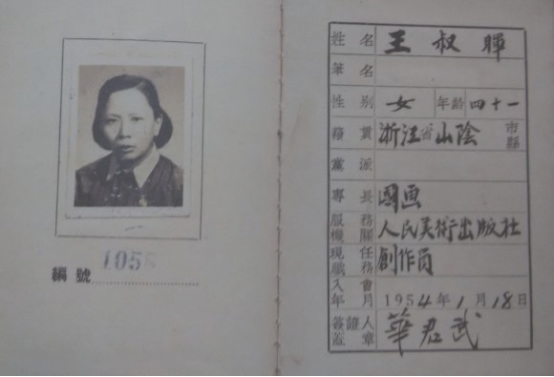 編號 1055
姓名 王叔暉
筆名
性別 女 年齡 四十一
籍貫 浙江省山陰 市縣
黨派
專長 國画
服務機關 人民美術出版社
現任職務 創作員
入會年月 1954年1月18日
簽證人蓋章 華君武